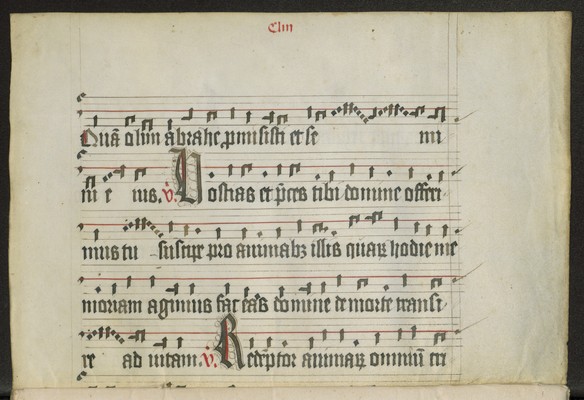 Clm
Quā olim abrahe pmisisti et se mi
ni e ius. v̄. Hostias et p̄ces tibi domine offeri
mus tu suscipe pro animabꝫ illis quaꝝ hodie me
moriam agimus fac eas domine de morte transi
re ad uitam. v̄. Redēptor animaꝝ omniū cri